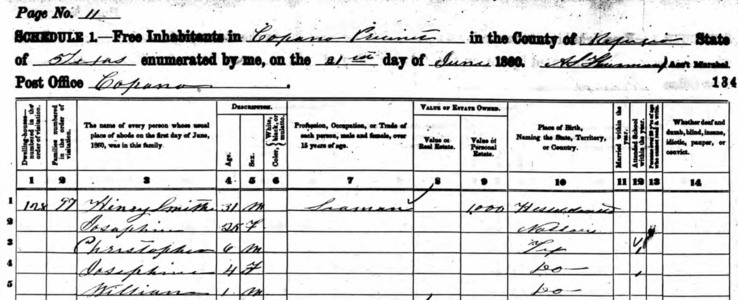 Page No. 11
SCHEDULE 1.—Free Inhabitants in Copano Precinct in the County of Refugio State
of Texas enumerated by me, on the 21st day of June 1860. Ass't Marshal.
Post Office Copano. 134
DESCRIPTION. VALUE OF ESTATE OWNED.
Dwelling-houses—numbered in the order of visitation. Families numbered in the order of visitation. The name of every person whose usual place of abode on the first day of June, 1860, was in this family. Age. Sex. Color, White, black, or mulatto. Profession, Occupation, or Trade of each person, male and female, over 15 years of age. Value of Real Estate. Value of Personal Estate. Place of Birth, Naming the State, Territory, or Country. Married within the year. Attended School within the year. Whether deaf and dumb, blind, insane, idiotic, pauper, or convict.
1 2 3 4 5 6 7 8 9 10 11 12 13 14
1 128 97 Henry Smith 31 M Seaman 1,000
2 Josephine 25 F
3 Christopher 6 M Tex
4 Josephine 4 F Do
5 William 1 M Do